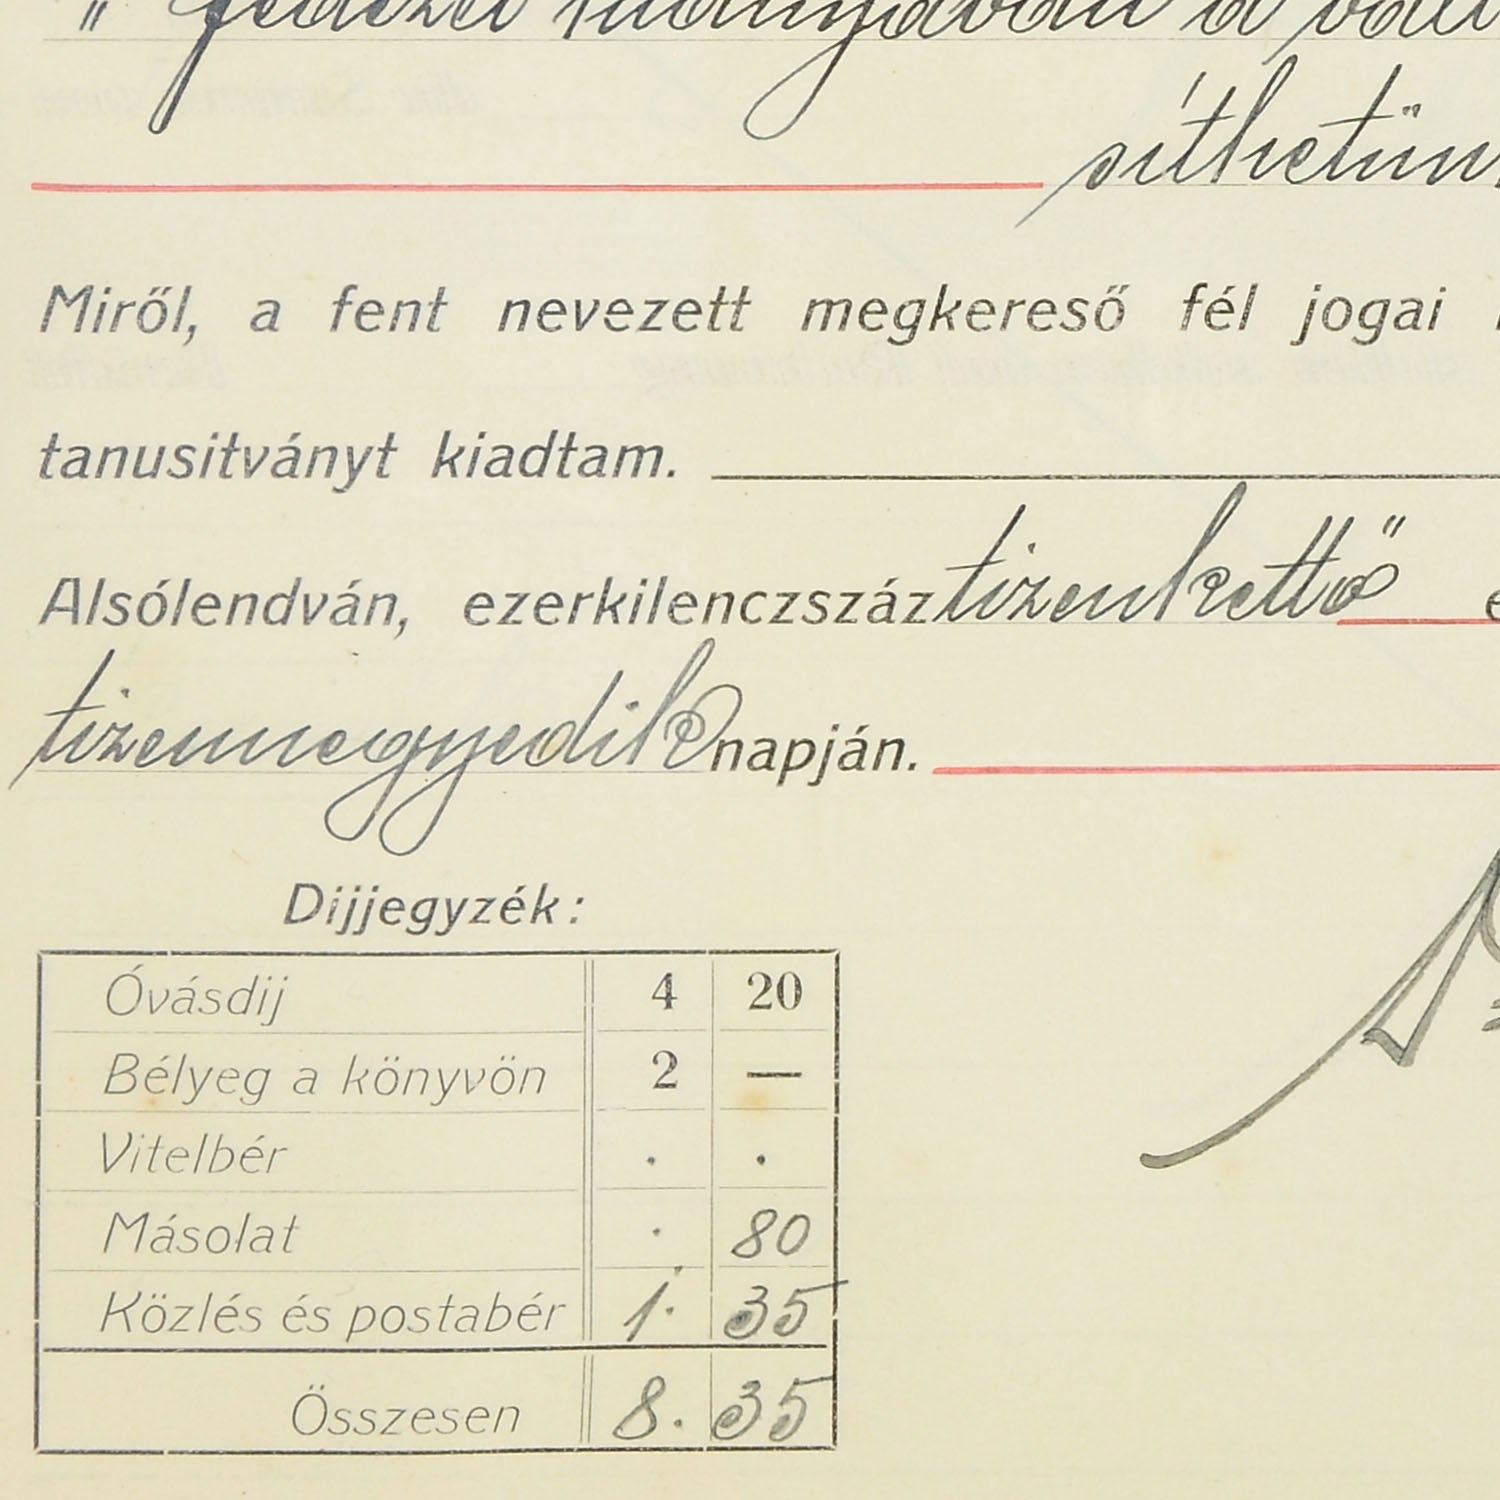 " fedezet hiányában a vált
síthetünk
Miről, a fent nevezett megkereső fél jogai
tanusitványt kiadtam.
Alsólendván, ezerkilenczszáz tizenkettő e
tizennegyedik napján.
Dijjegyzék:
Óvásdij 4 20
Bélyeg a könyvön 2 —
Vitelbér . .
Másolat . 80
Közlés és postabér 1. 35
Összesen 8. 35